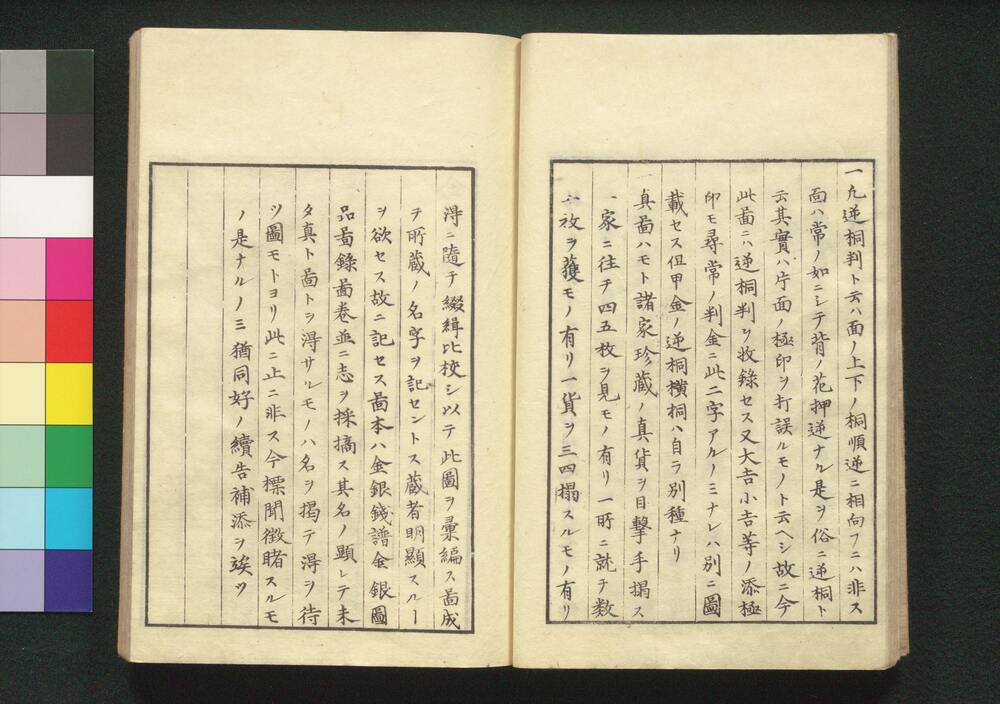 一九逆桐判ト云ハ面ノ上下ノ桐順逆ニ相向フニハ非ス
面ハ常ノ如ニシテ背ノ花押逆ナル是ヲ俗ニ逆桐ト
云其實ハ片面ノ極印ヲ打誤ルモノト云ヘシ故ニ今
此啚ニハ逆桐判ヲ收錄セス又大吉小吉等ノ添極
印モ尋常ノ判金ニ此二字アルノミナレハ別ニ圖
載セス但甲金ノ逆桐橫桐ハ自ラ別種ナリ
一真啚ハモト諸家珍藏ノ真貨ヲ目擊手搨ス
一家ニ往テ四五枚ヲ見モノ有リ一所ニ就テ數
枚ヲ獲モノ有リ一貨ヲ三四搨スルモノ有リ
淂ニ隨テ綴緝比校シ以テ此圖ヲ彙編ス啚成
テ所藏ノ名字ヲ記セントス藏者明顯スルー
ヲ欲セス故ニ記セス啚本ハ金銀錢譜金銀圖
品啚錄啚卷並ニ志ヲ採摘ス其名ノ顯レテ未
タ真ト啚トヲ淂サルモノハ名ヲ揭テ淂ヲ待
ツ圖モトヨリ此ニ止ニ非ス今標聞徵睹スルモ
ノ是ナルノミ猶同好ノ續告補添ヲ竢ツ